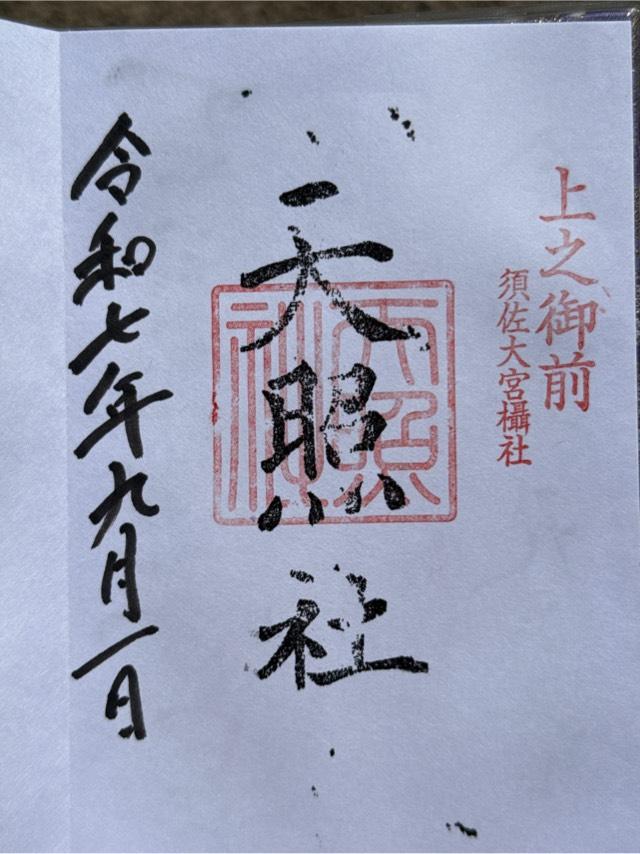 上之御前
須佐大宮攝社
天照社
令和七年九月一日